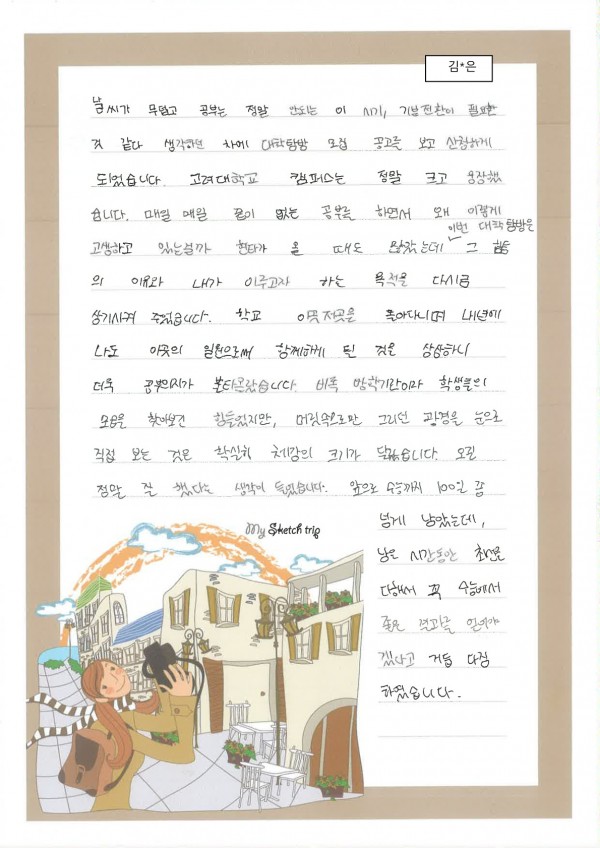 김*은
날씨가 무덥고 공부는 정말 안되는 이 시기, 기분전환이 필요한
것 같다 생각하던 차에 대학탐방 모집 공고를 보고 신청하게
되었습니다. 고려대학교 캠퍼스는 정말 크고 웅장했
습니다. 매일 매일 끝이 없는 공부를 하면서 왜 이렇게
이번 대학탐방은
고생하고 있는걸까 현타가 올 때도 많았는데 그 힘듦
의 이유와 내가 이루고자 하는 목적을 다시금
상기시켜 주었습니다. 학교 이곳저곳을 돌아다니며 내년에
나도 이곳의 일원으로써 함께하게 될 것을 상상하니
더욱 공부의지가 불타올랐습니다. 비록 방학기간이라 학생들의
모습을 찾아보긴 힘들었지만, 머릿속으로만 그리던 광경을 눈으로
직접 보는 것은 확실히 체감의 크기가 달랐습니다. 오길
정말 잘 했다는 생각이 들었습니다. 앞으로 수능까지 100일 좀
넘게 남았는데,
남은 시간동안 최선을
다해서 꼭 수능에서
좋은 결과를 얻어야
겠다고 거듭 다짐
하였습니다.
My Sketch trip